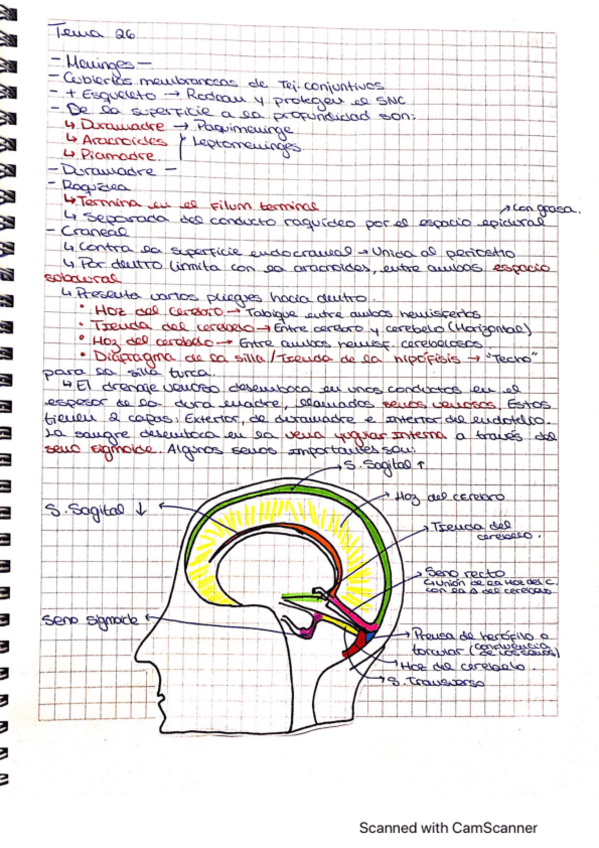 Tema 26
- Meninges -
- Cubiertas membranosas de Tej. conjuntivos
- + Esqueleto → Rodean y protegen el SNC
- De la superficie a la profundidad son:
↳ Duramadre → Paquimeninge
↳ Aracnoides
↳ Piamadre. } Leptomeninges
- Duramadre -
- Raquídea
↳ Termina en el Filum terminal
→ con grasa.
↳ Separada del conducto raquídeo por el espacio epidural
- Craneal
↳ Contra la superficie endocraneal → Unida al periostio
↳ Por dentro limita con la aracnoides, entre ambos espacio
subdural
↳ Presenta varios pliegues hacia dentro.
• Hoz del cerebro → Tabique entre ambos hemisferios
• Tienda del cerebelo → Entre cerebro y cerebelo (Horizontal)
• Hoz del cerebelo → Entre ambos hemisf. cerebelosos.
• Diafragma de la silla / Tienda de la hipófisis → "Techo"
para la silla turca.
↳ El drenaje venoso desemboca en unos conductos en el
espesor de la dura madre, llamados senos venosos. Estos
tienen 2 capas: Exterior, de duramadre e Interior del endotelio.
La sangre desemboca en la vena yugular interna a través del
seno sigmoide. Algunos senos importantes son:
S. Sagital ↑
Hoz del cerebro
S. Sagital ↓
Tienda del
cerebelo.
Seno recto
↳ Unión de la Hoz del C.
con la Δ del cerebelo
Seno sigmoide
Prensa de herófilo o
torcular (confluencia
de los senos)
Hoz del cerebelo.
S. Transverso
Scanned with CamScanner